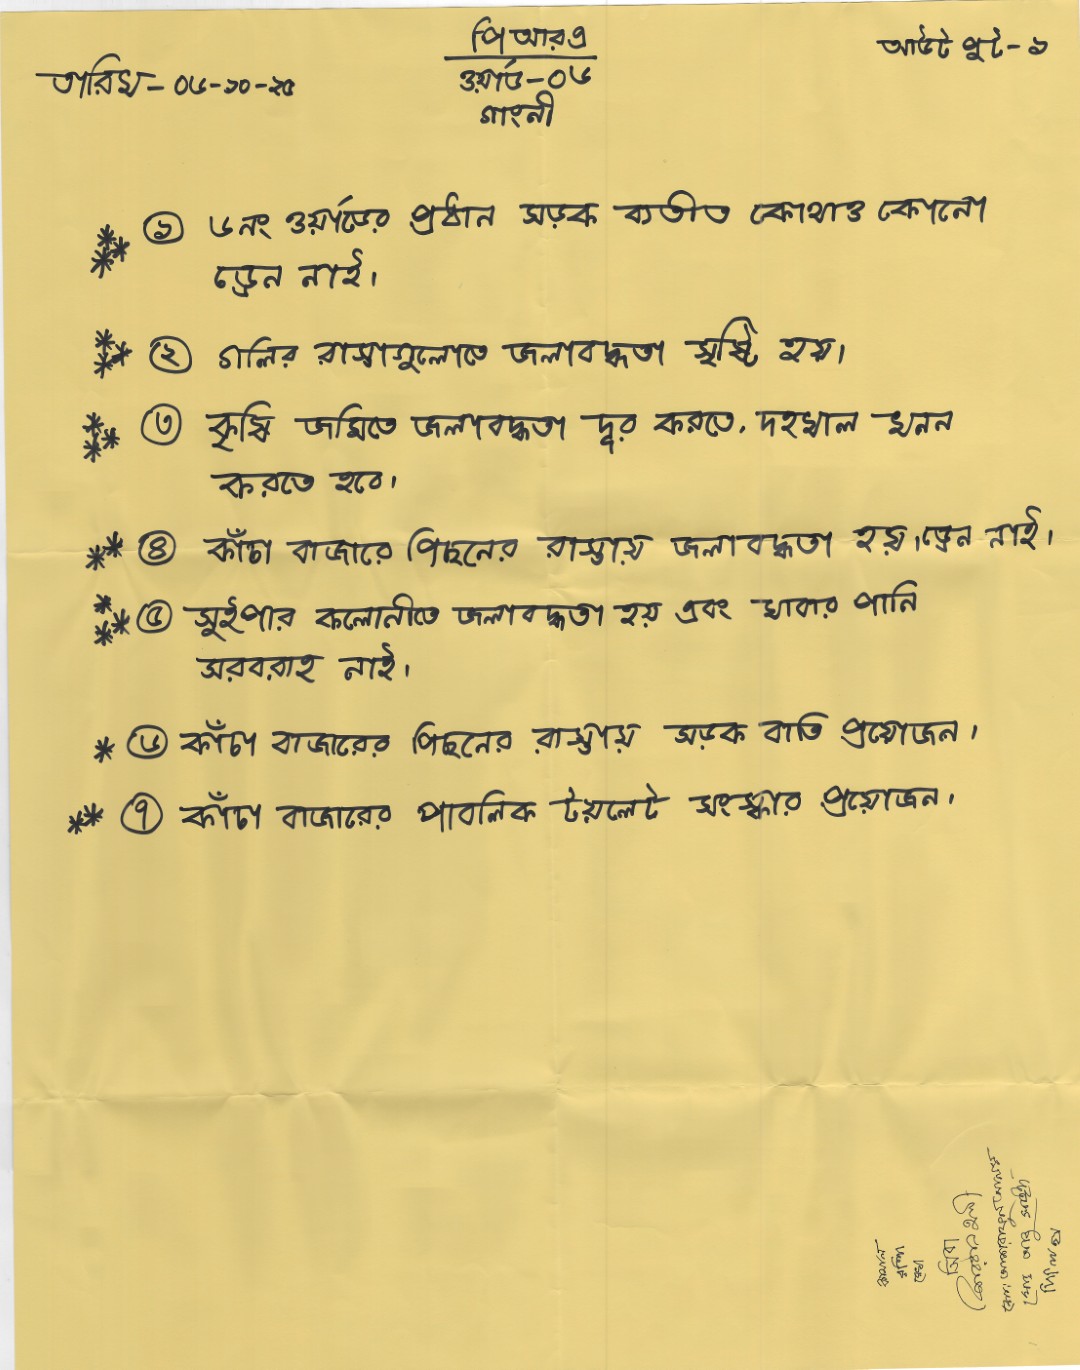 পিআরএ
তারিখ - ০৬-১০-২৫
ওয়ার্ড-০৬
আউট পুট - ১
গাংনী
** * ১ ৬নং ওয়ার্ডের প্রধান সড়ক ব্যতীত কোথাও কোনো
ড্রেন নাই।
*** ২ গলির রাস্তাগুলোতে জলাবদ্ধতা সৃষ্টি হয়।
*** ৩ কৃষি জমিতে জলাবদ্ধতা দূর করতে, দহখাল খনন
করতে হবে।
** ৪ কাঁচা বাজারে পিছনের রাস্তায় জলাবদ্ধতা হয়। ড্রেন নাই।
*** ৫ সুইপার কলোনীতে জলাবদ্ধতা হয় এবং খাবার পানি
সরবরাহ নাই।
* ৬ কাঁচা বাজারের পিছনের রাস্তায় সড়ক বাতি প্রয়োজন।
** ৭ কাঁচা বাজারের পাবলিক টয়লেট সংস্কার প্রয়োজন।